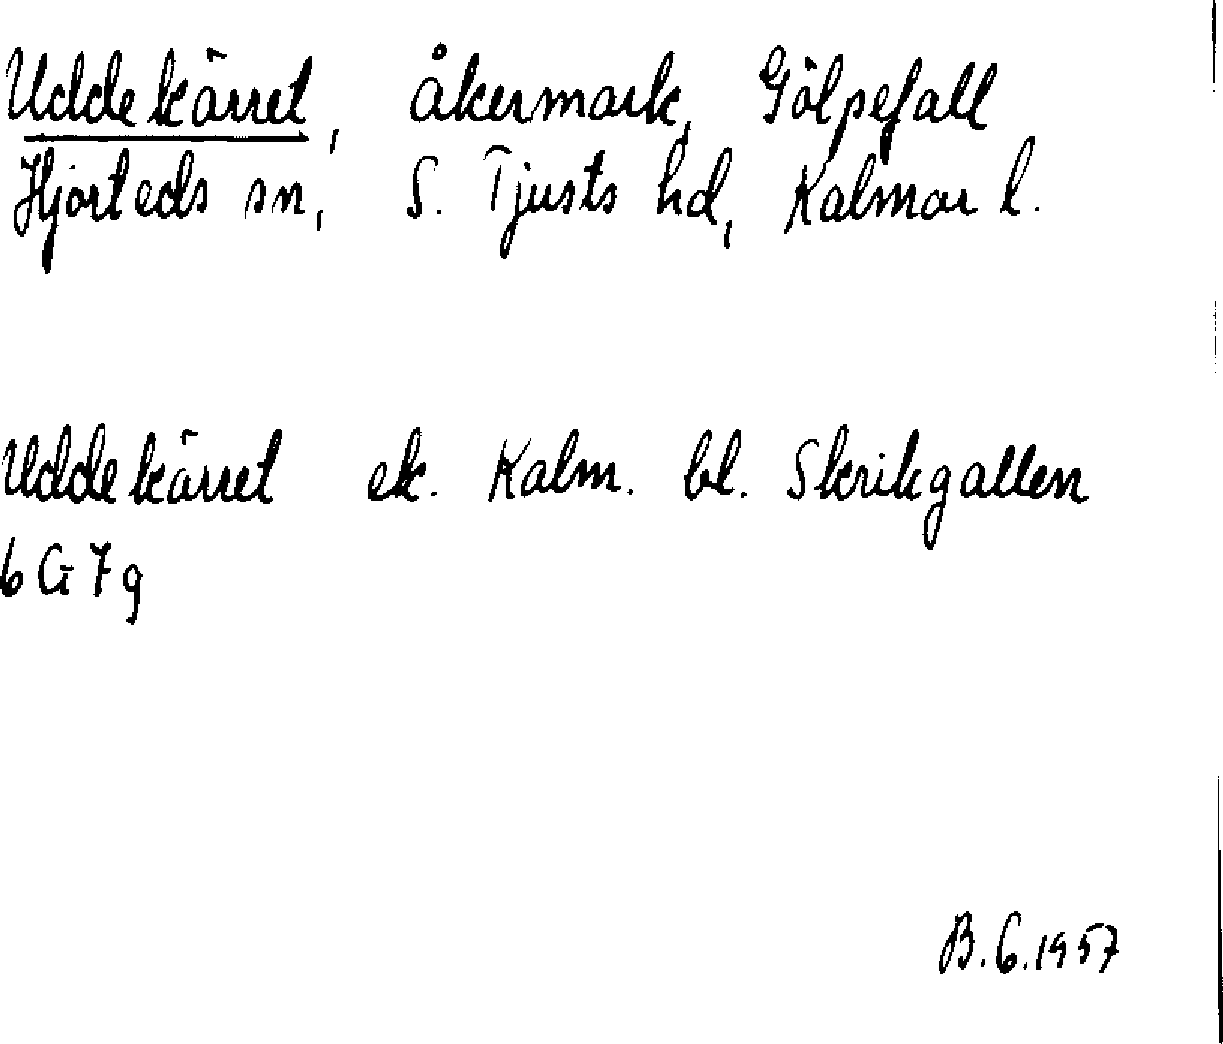 Uddekärret, åkermark, Gölpefall
Hjorteds sn, S. Tjusts hd, Kalmar l.
Uddekärret ek. Kalm. bl. Skrikgallen
6G7g
B.G.1957